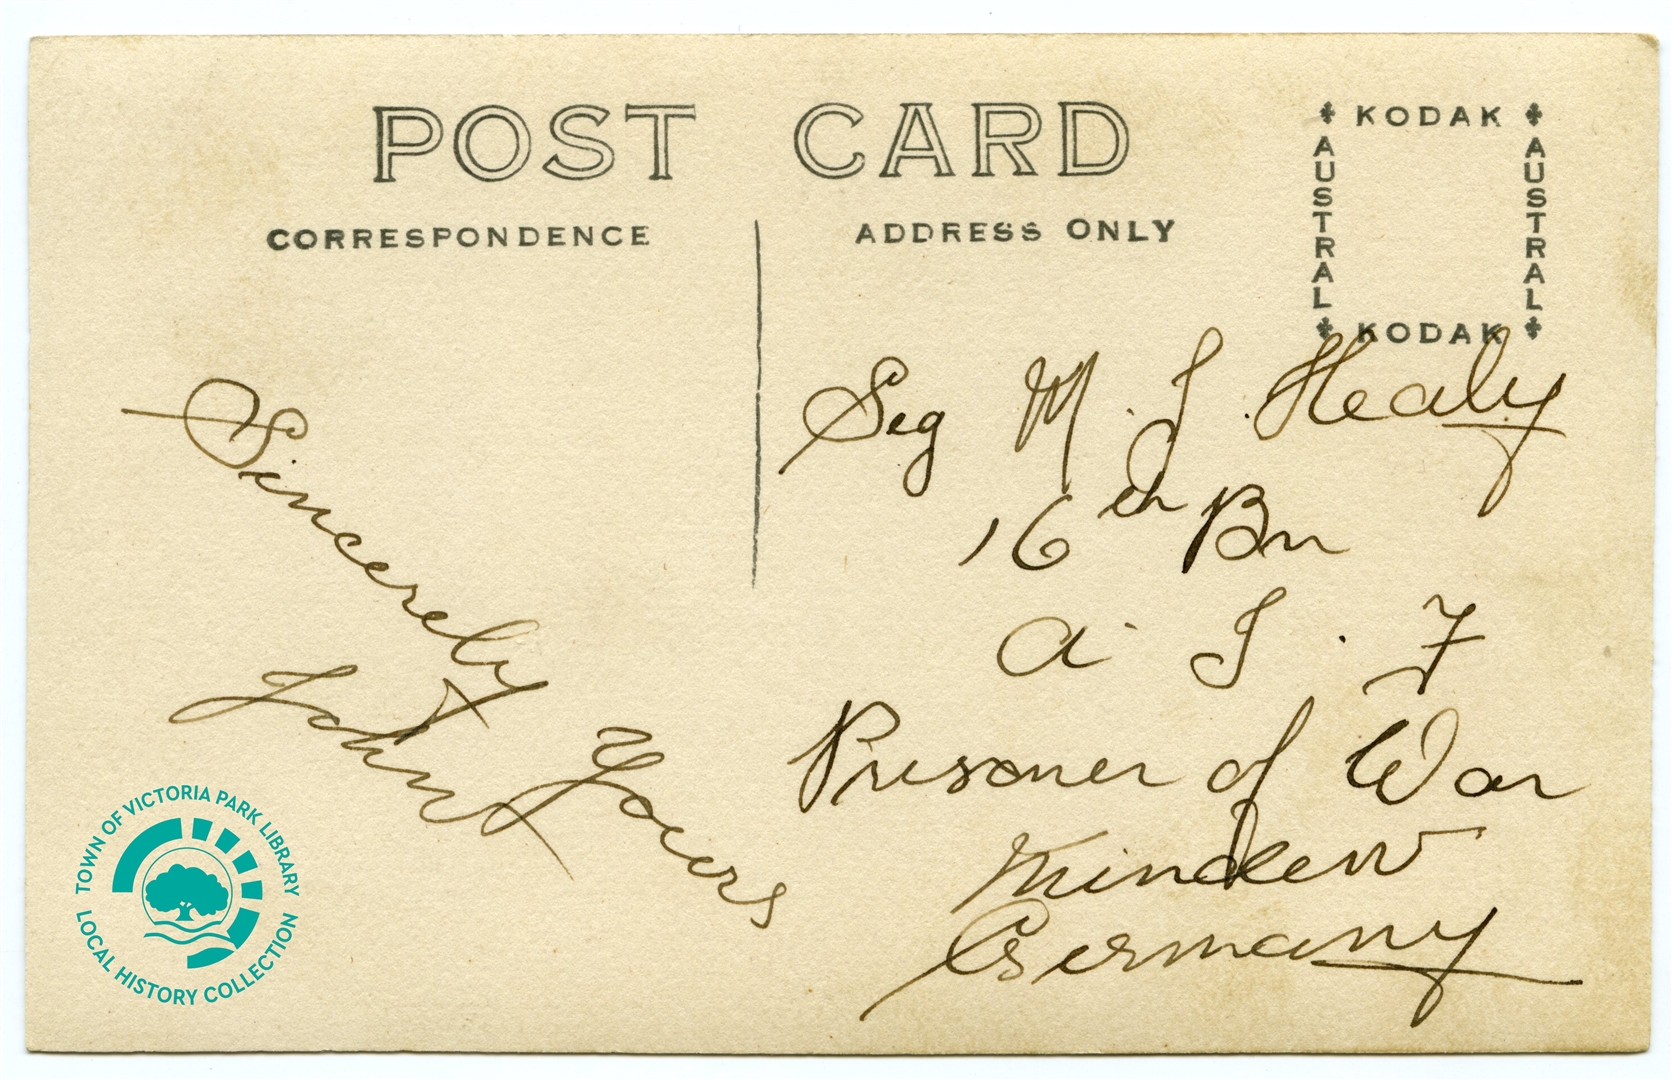 POST CARD
CORRESPONDENCE
ADDRESS ONLY
KODAK
AUSTRAL
AUSTRAL
KODAK
Sincerely Yours
John
Seg M. J. Healy
16th Bn
A. I. F
Prisoner of War
Minden
Germany
TOWN OF VICTORIA PARK LIBRARY
LOCAL HISTORY COLLECTION